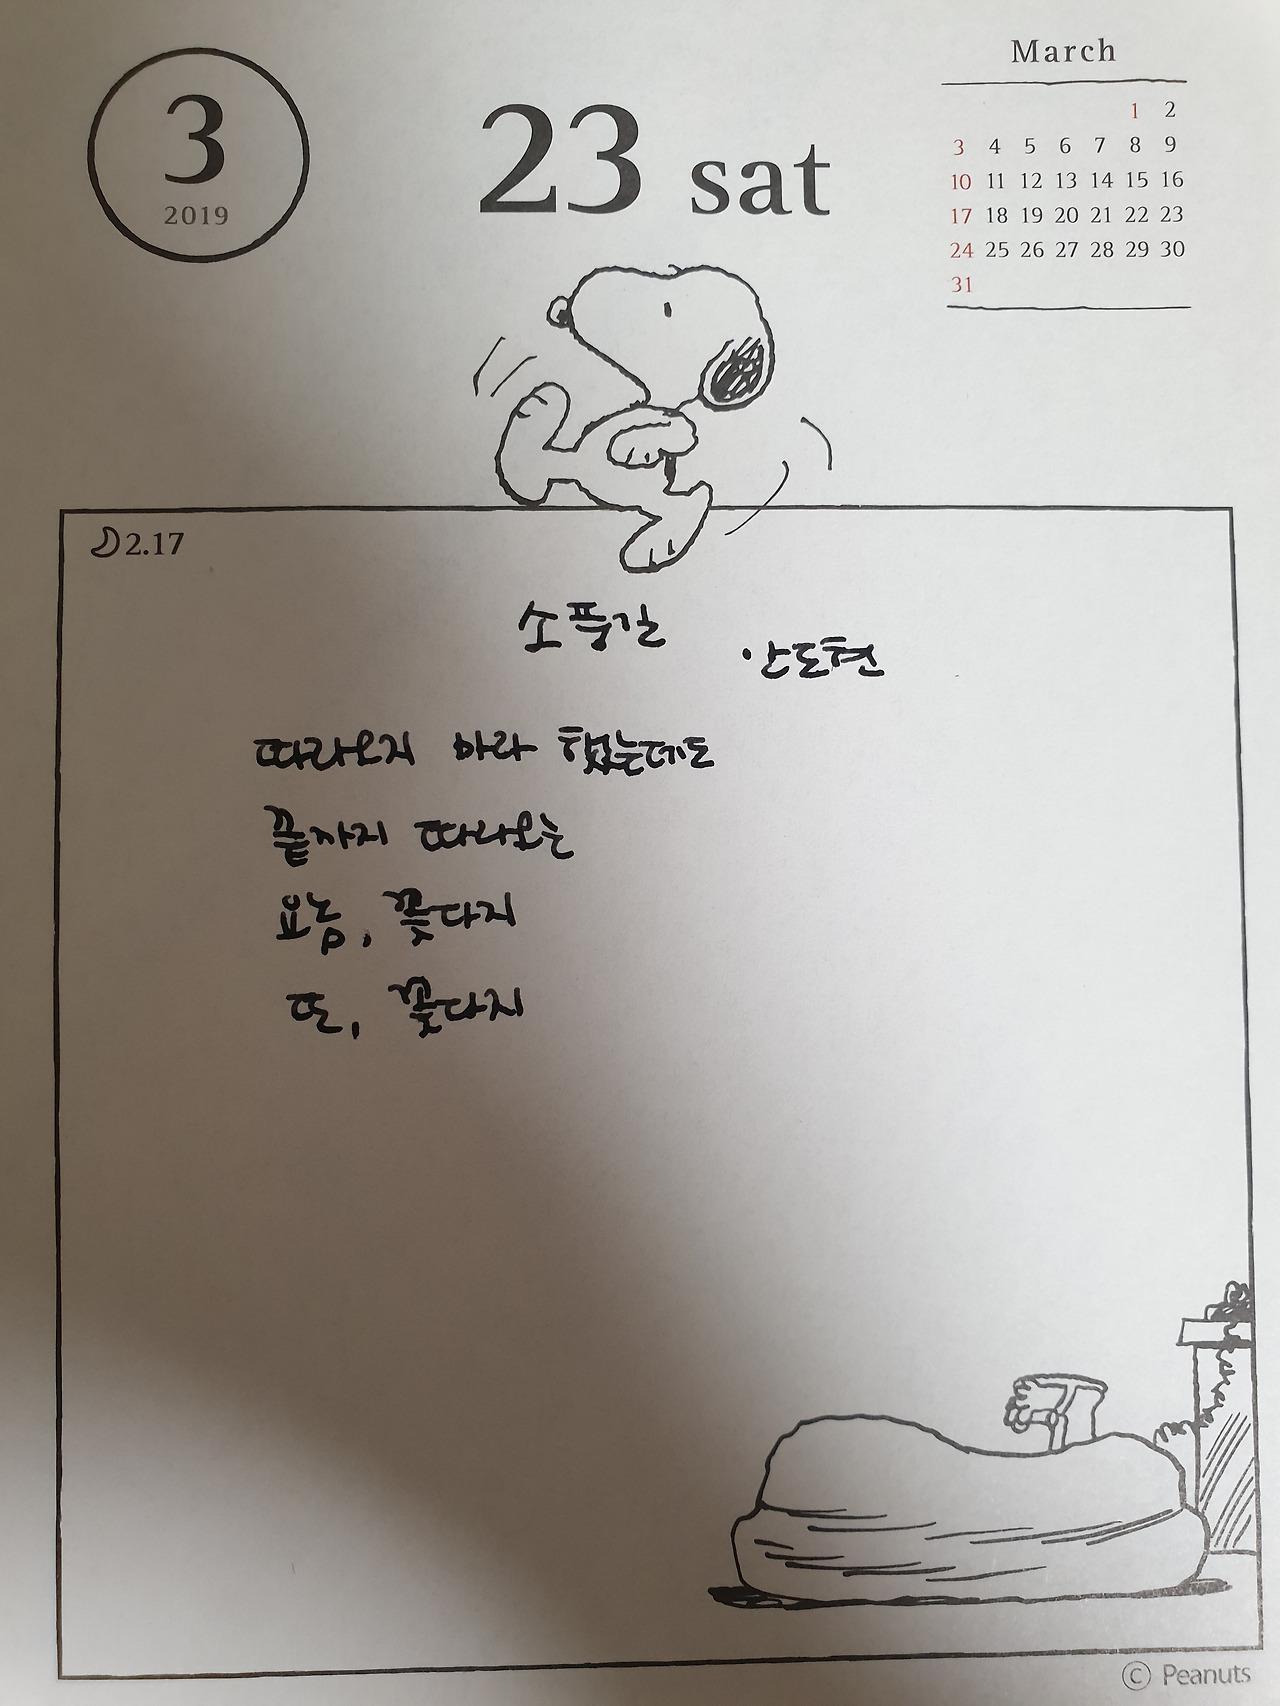 3
2019
23 sat
March
1 2
3 4 5 6 7 8 9
10 11 12 13 14 15 16
17 18 19 20 21 22 23
24 25 26 27 28 29 30
31
2.17
소풍길
안도현
따라오지 마라 했는데도
끝까지 따라오는
요놈, 꽃다지
또, 꽃다지
© Peanuts